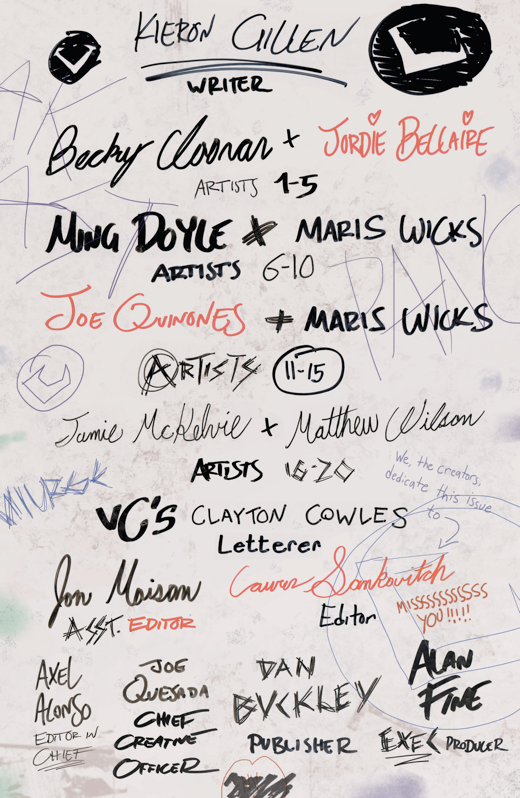 KIERON GILLEN
WRITER
Becky Cloonan +
JORDIE BELLAIRE
ARTISTS 1-5
MING DOYLE + MARIS WICKS
ARTISTS 6-10
JOE QUINONES + MARIS WICKS
ARTISTS 11-15
Jamie McKelvie + Matthew Wilson
ARTISTS 16-20
We, the creators,
dedicate this issue
to
VC's CLAYTON COWLES
Letterer
Jon Moisan
ASST. EDITOR
Lauren Sankovitch
Editor
MISSSSSSSSSS
YOU!!!!!
AXEL
ALONSO
EDITOR IN
CHIEF
JOE
QUESADA
CHIEF
CREATIVE
OFFICER
DAN
BUCKLEY
PUBLISHER
ALAN
FINE
EXEC PRODUCER